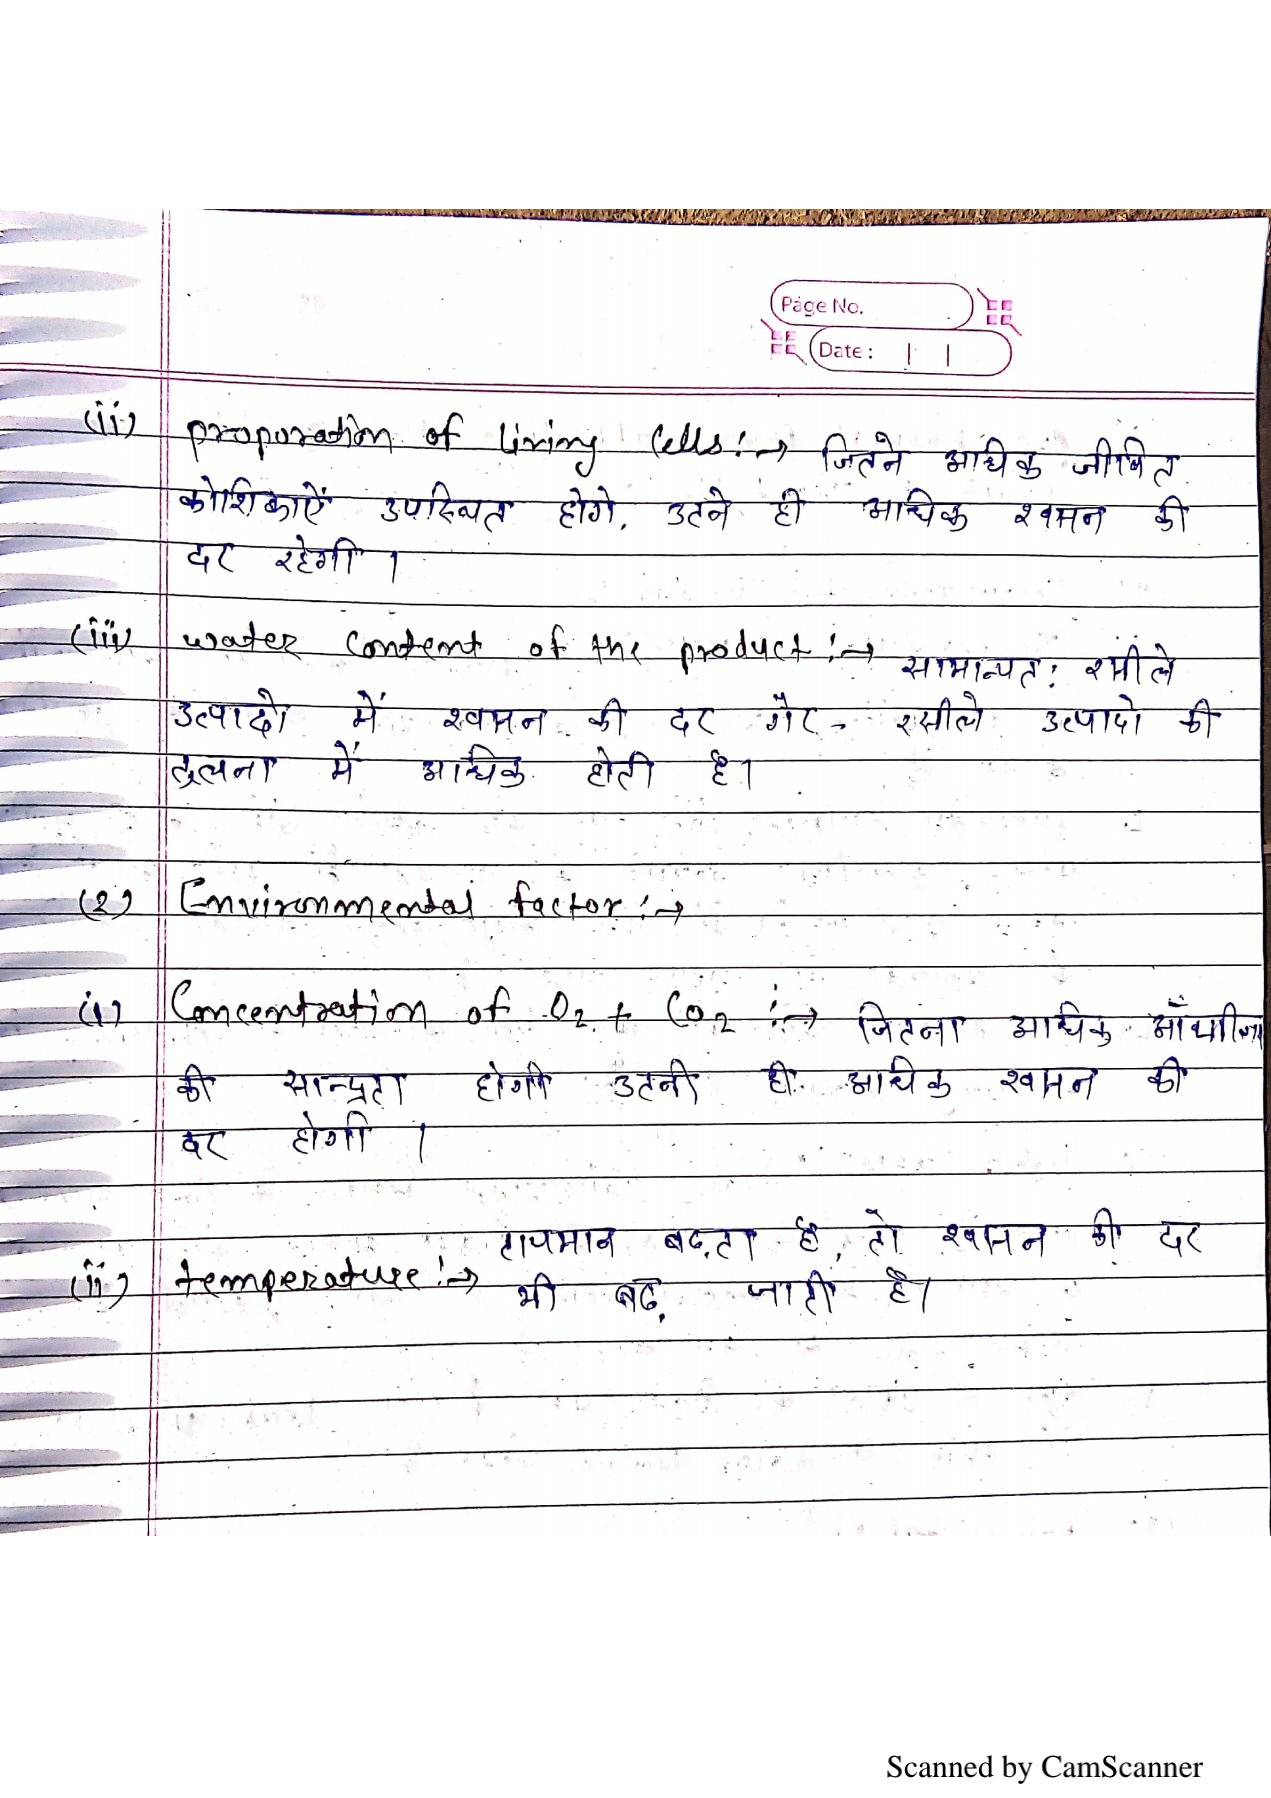 Page No.
Date :
(ii) proporation of living Cells :→ जितने अधिक जीवित
कोशिकाऐं उपस्थित होगे, उतने ही अधिक श्वसन की
दर रहेगी ।
(iii) water content of the product :→ सामान्यत: रसीले
उत्पादो में श्वसन की दर गैर - रसीले उत्पादो की
तुलना में अधिक होती है।
(2) Environmental factor :→
(i) Concentration of O2 + CO2 :→ जितना अधिक
की सान्द्रता होगी उतनी ही अधिक श्वसन की
दर होगी ।
तापमान बढ़ता है, तो श्वसन की दर
(ii) temperature :→ भी बढ़ जाती है।
Scanned by CamScanner